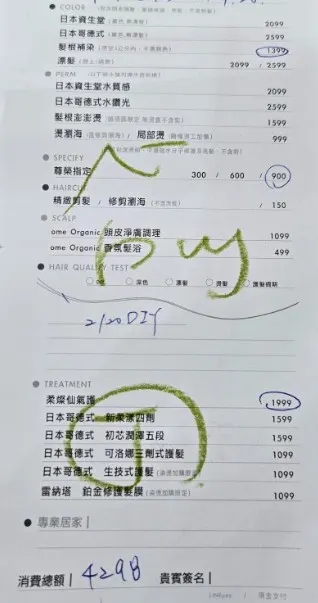 COLOR
日本資生堂 2099
日本哥德式 2599
髮根補染 1399
漂髮 2099 / 2599
PERM
日本資生堂水質感 2099
日本哥德式水鑽光 2599
髮根澎澎燙 1599
燙瀏海 / 局部燙 999
SPECIFY
尊榮指定 300 / 600 / 900
HAIRCUT
精緻剪髮 / 修剪瀏海 / 150
SCALP
ome Organic 頭皮淨膚調理 1099
ome Organic 香氛髮浴 499
HAIR QUALITY TEST
深色 漂髮 燙髮
2/20 DIY
TREATMENT
柔燦仙氣護 1999
日本哥德式 新柔漾四劑 1599
日本哥德式 初芯潤澤五段 1599
日本哥德式 可洛娜三劑式護髮 1099
日本哥德式 生技式護髮 1099
雷納塔 鉑金修護髮膜 1099
專業居家
消費總額 4298 貴賓簽名